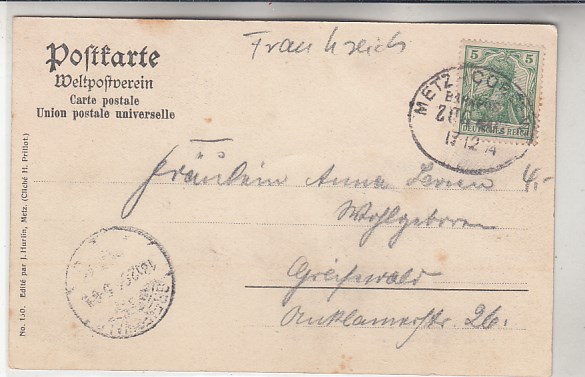 Postkarte
Weltpostverein
Carte postale
Union postale universelle
Frankreich
5 5
DEUTSCHES REICH
METZ
BAHNPOST
Fräulein Anna
4,-
Wohlgeboren
Greifswald
Anklamerstr. 26.
No. 130. Edité par J. Hurlin, Metz. (Cliché H. Prillot.)